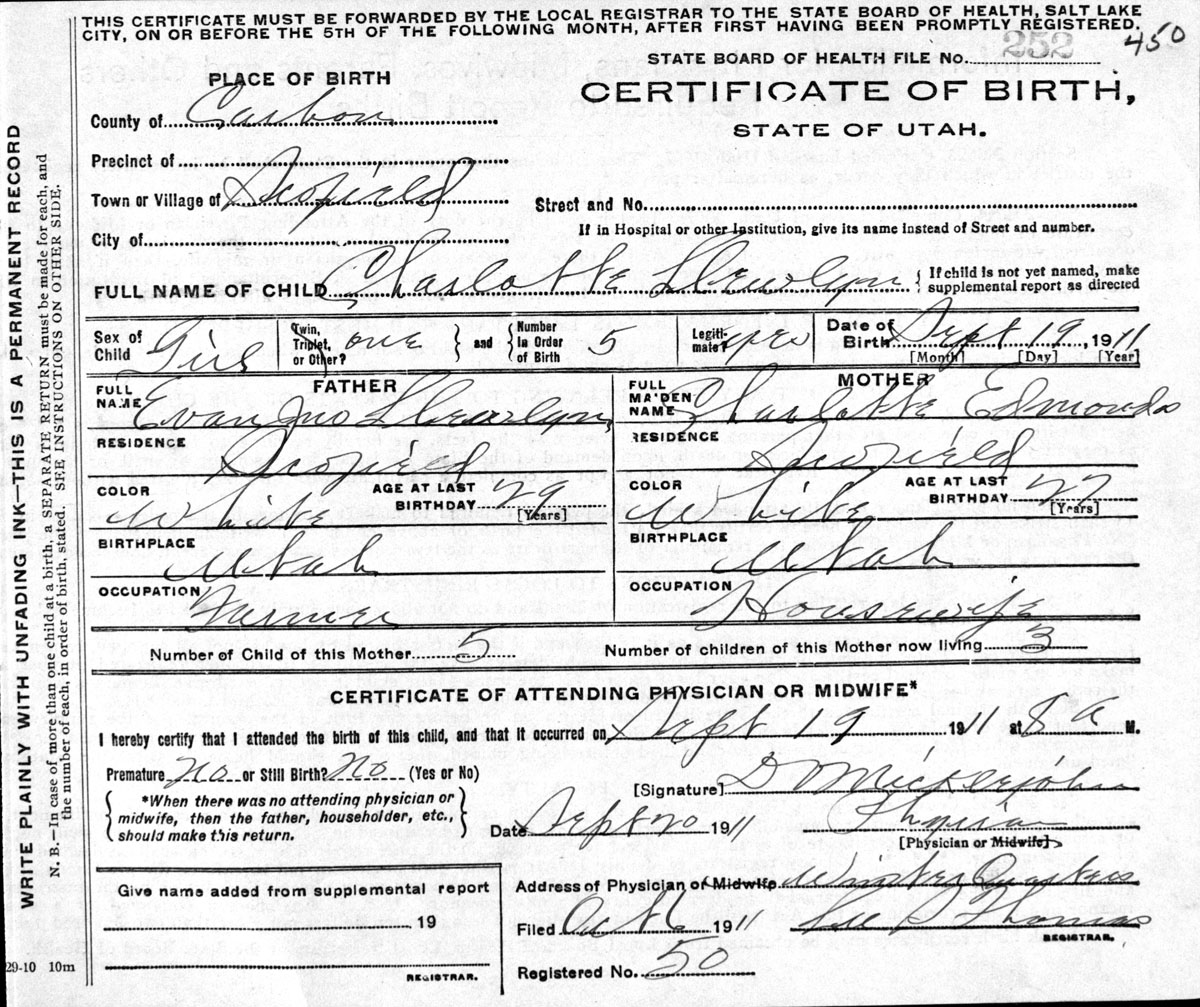 THIS CERTIFICATE MUST BE FORWARDED BY THE LOCAL REGISTRAR TO THE STATE BOARD OF HEALTH, SALT LAKE
CITY, ON OR BEFORE THE 5TH OF THE FOLLOWING MONTH, AFTER FIRST HAVING BEEN PROMPTLY REGISTERED.
450
STATE BOARD OF HEALTH FILE No. 252
PLACE OF BIRTH
CERTIFICATE OF BIRTH,
STATE OF UTAH.
County of Carbon
Precinct of
Town or Village of Scofield
Street and No.
City of
If in Hospital or other Institution, give its name instead of Street and number.
FULL NAME OF CHILD Charlotte Llewlyn { If child is not yet named, make
supplemental report as directed
Sex of Child Girl
Twin, Triplet, or Other? one } and { Number In Order of Birth 5
Legitimate? yes
Date of Birth Sept 19, 1911
[Month] [Day] [Year]
FATHER
FULL NAME Evan Jno Llewlyn
RESIDENCE Scofield
COLOR White
AGE AT LAST BIRTHDAY 29 [Years]
BIRTHPLACE Utah
OCCUPATION Miner
MOTHER
FULL MAIDEN NAME Charlotte Edmonds
RESIDENCE Scofield
COLOR White
AGE AT LAST BIRTHDAY 27 [Years]
BIRTHPLACE Utah
OCCUPATION Housewife
Number of Child of this Mother 5 Number of children of this Mother now living 3
CERTIFICATE OF ATTENDING PHYSICIAN OR MIDWIFE*
I hereby certify that I attended the birth of this child, and that it occurred on Sept 19 1911 at 8 a M.
Premature No or Still Birth? No (Yes or No)
{ *When there was no attending physician or
midwife, then the father, householder, etc.,
should make this return. }
[Signature]
Date Sept 20 1911
[Physician or Midwife]
Give name added from supplemental report
19
REGISTRAR.
Address of Physician or Midwife Winter Quarters
Filed Oct 6 1911 Thomas
REGISTRAR.
Registered No. 50
29-10 10m
WRITE PLAINLY WITH UNFADING INK—THIS IS A PERMANENT RECORD
N. B.—In case of more than one child at a birth, a SEPARATE RETURN must be made for each, and
the number of each, in order of birth, stated. SEE INSTRUCTIONS ON OTHER SIDE.